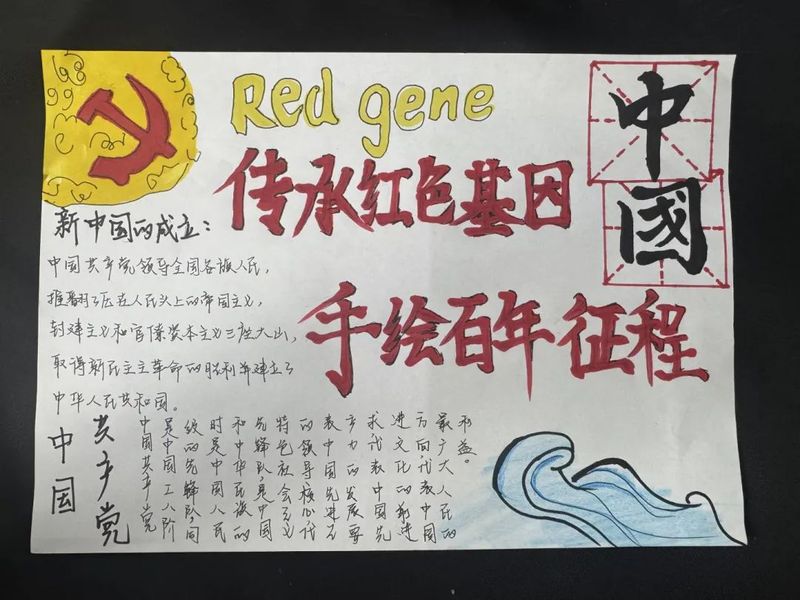 Red gene
传承红色基因
手绘百年征程
中
國
新中国的成立：
中国共产党领导全国各族人民，
推翻了压在人民头上的帝国主义，
封建主义和官僚资本主义三座大山，
取得新民主主义革命的胜利并建立了
中华人民共和国。
中国
共产党
中国共产党
是中国工人阶
级的先锋队，同
时是中国人民
和中华民族的
先锋队，是中国
特色社会主义
的领导核心代
表中国先进生
产力的发展要
求代表中国先
进文化的前进
方向，代表中国
最广大人民的
利益。